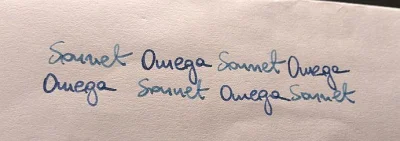 Sonnet Omega Sonnet Omega
Omega Sonnet Omega Sonnet